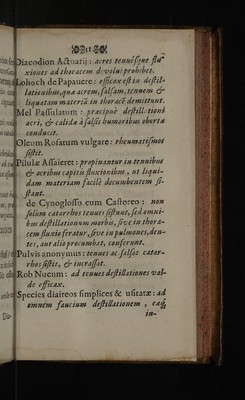 31
Diacodion Actuarij : acres tenuésque flu-
xiones ad thoracem devolui prohibet.
Lohoch de Papauere : efficax est in destil-
lationibus, quæ acrem, salsam, tenuem &
liquatam materiã in thoracẽ demittunt.
Mel Passulatum : præcipuè destillationi
acri, & calidæ à salsis humoribus obortæ
conducit.
Oleum Rosatum vulgare : rheumatismos
sistit.
Pilulæ Assaieret : propinantur in tenuibus
& acribus capitis fluxionibus, vt liqui-
dam materiam facilè decumbentem si-
stant.
de Cynoglosso cum Castoreo : non
solùm catarrhos tenues sistunt, sed omni-
bus destillationum morbis, sive in thora-
cem fluxio feratur, sive in pulmones, den-
tes, aut alio procumbat, conferunt.
Pulvis anonymus : tenues ac salsos catar-
rhos sistit, & incrassat.
Rob Nucum : ad tenues destillationes val-
de efficax.
Species diaireos simplices & usitatæ : ad
omnem faucium destillationem , eaq́
in-